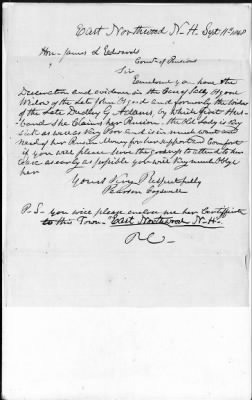 East Northwood N.H. Sept 11th 1848
Hon. James L Edwards
Com of Pension
Sir
Enclosed you have the
Decoration and evidence in the Case of Sally
Widow of the late John and formerly the Widow
of the Late Dudley G Adams, by which first Hus-
band she Claims her Pension. the Old Lady is very
sick as well as very Poor and is in much want and
need of her Pension Money for her support & Comfort
if you will please have the goodness to attend to her
Case as early as possible you will very much Oblige
her
Yours Very Respectfully
Pearson Cogswell
P.S. You will please enclose me her Certificate
to this Town "East Northwood N-H-
P.C-